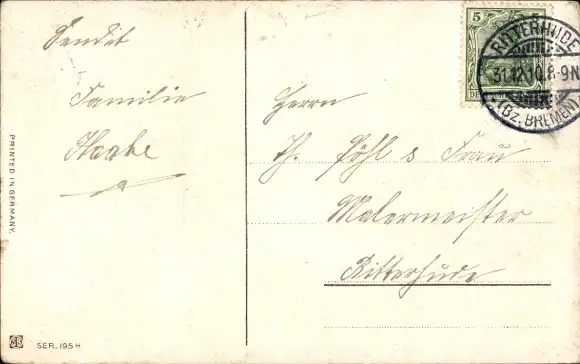 Sendet
Familie
PRINTED IN GERMANY.
SB
SER. 195 H
5 5
RITTERHUDE
31.12.10.8-9N
(BZ. BREMEN)
Herrn
Th. Pöhl & Frau
Malermeister
Ritterhude